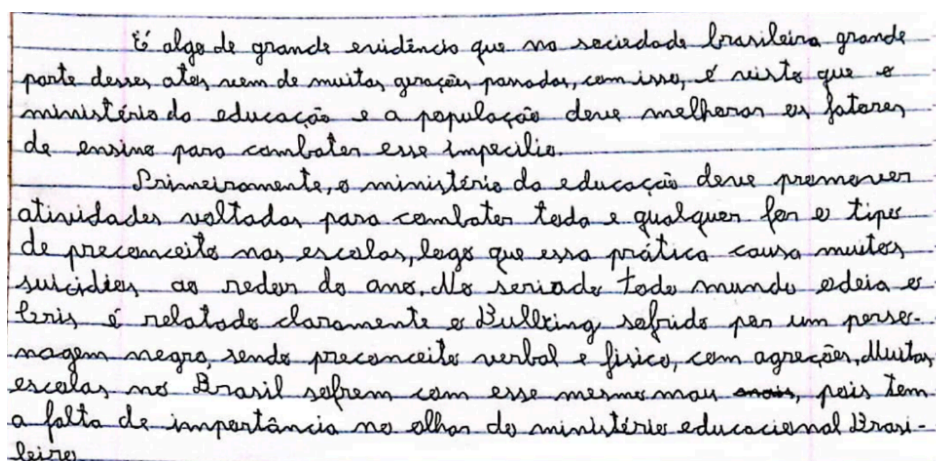 É algo de grande evidência que na sociedade brasileira grande
parte desses atos vem de muitas gerações passadas, com isso, é visto que o
ministério da educação e a população deve melhorar os fatores
de ensino para combater esse impecilio.
Primeiramente, o ministério da educação deve promover
atividades voltadas para combater toda e qualquer for o tipo
de preconceito nas escolas, logo que essa prática causa muitos
suicidios ao redor do ano. No seriado todo mundo odeia o
Cris é relatado claramente o Bullxing sofrido por um perso-
nagem negro, sendo preconceito verbal e fisico, com agreções. Muitas
escolas no Brasil sofrem com esse mesmo mau, pois tem
a falta de importância no olhar do ministério educacional Brasi-
leiro